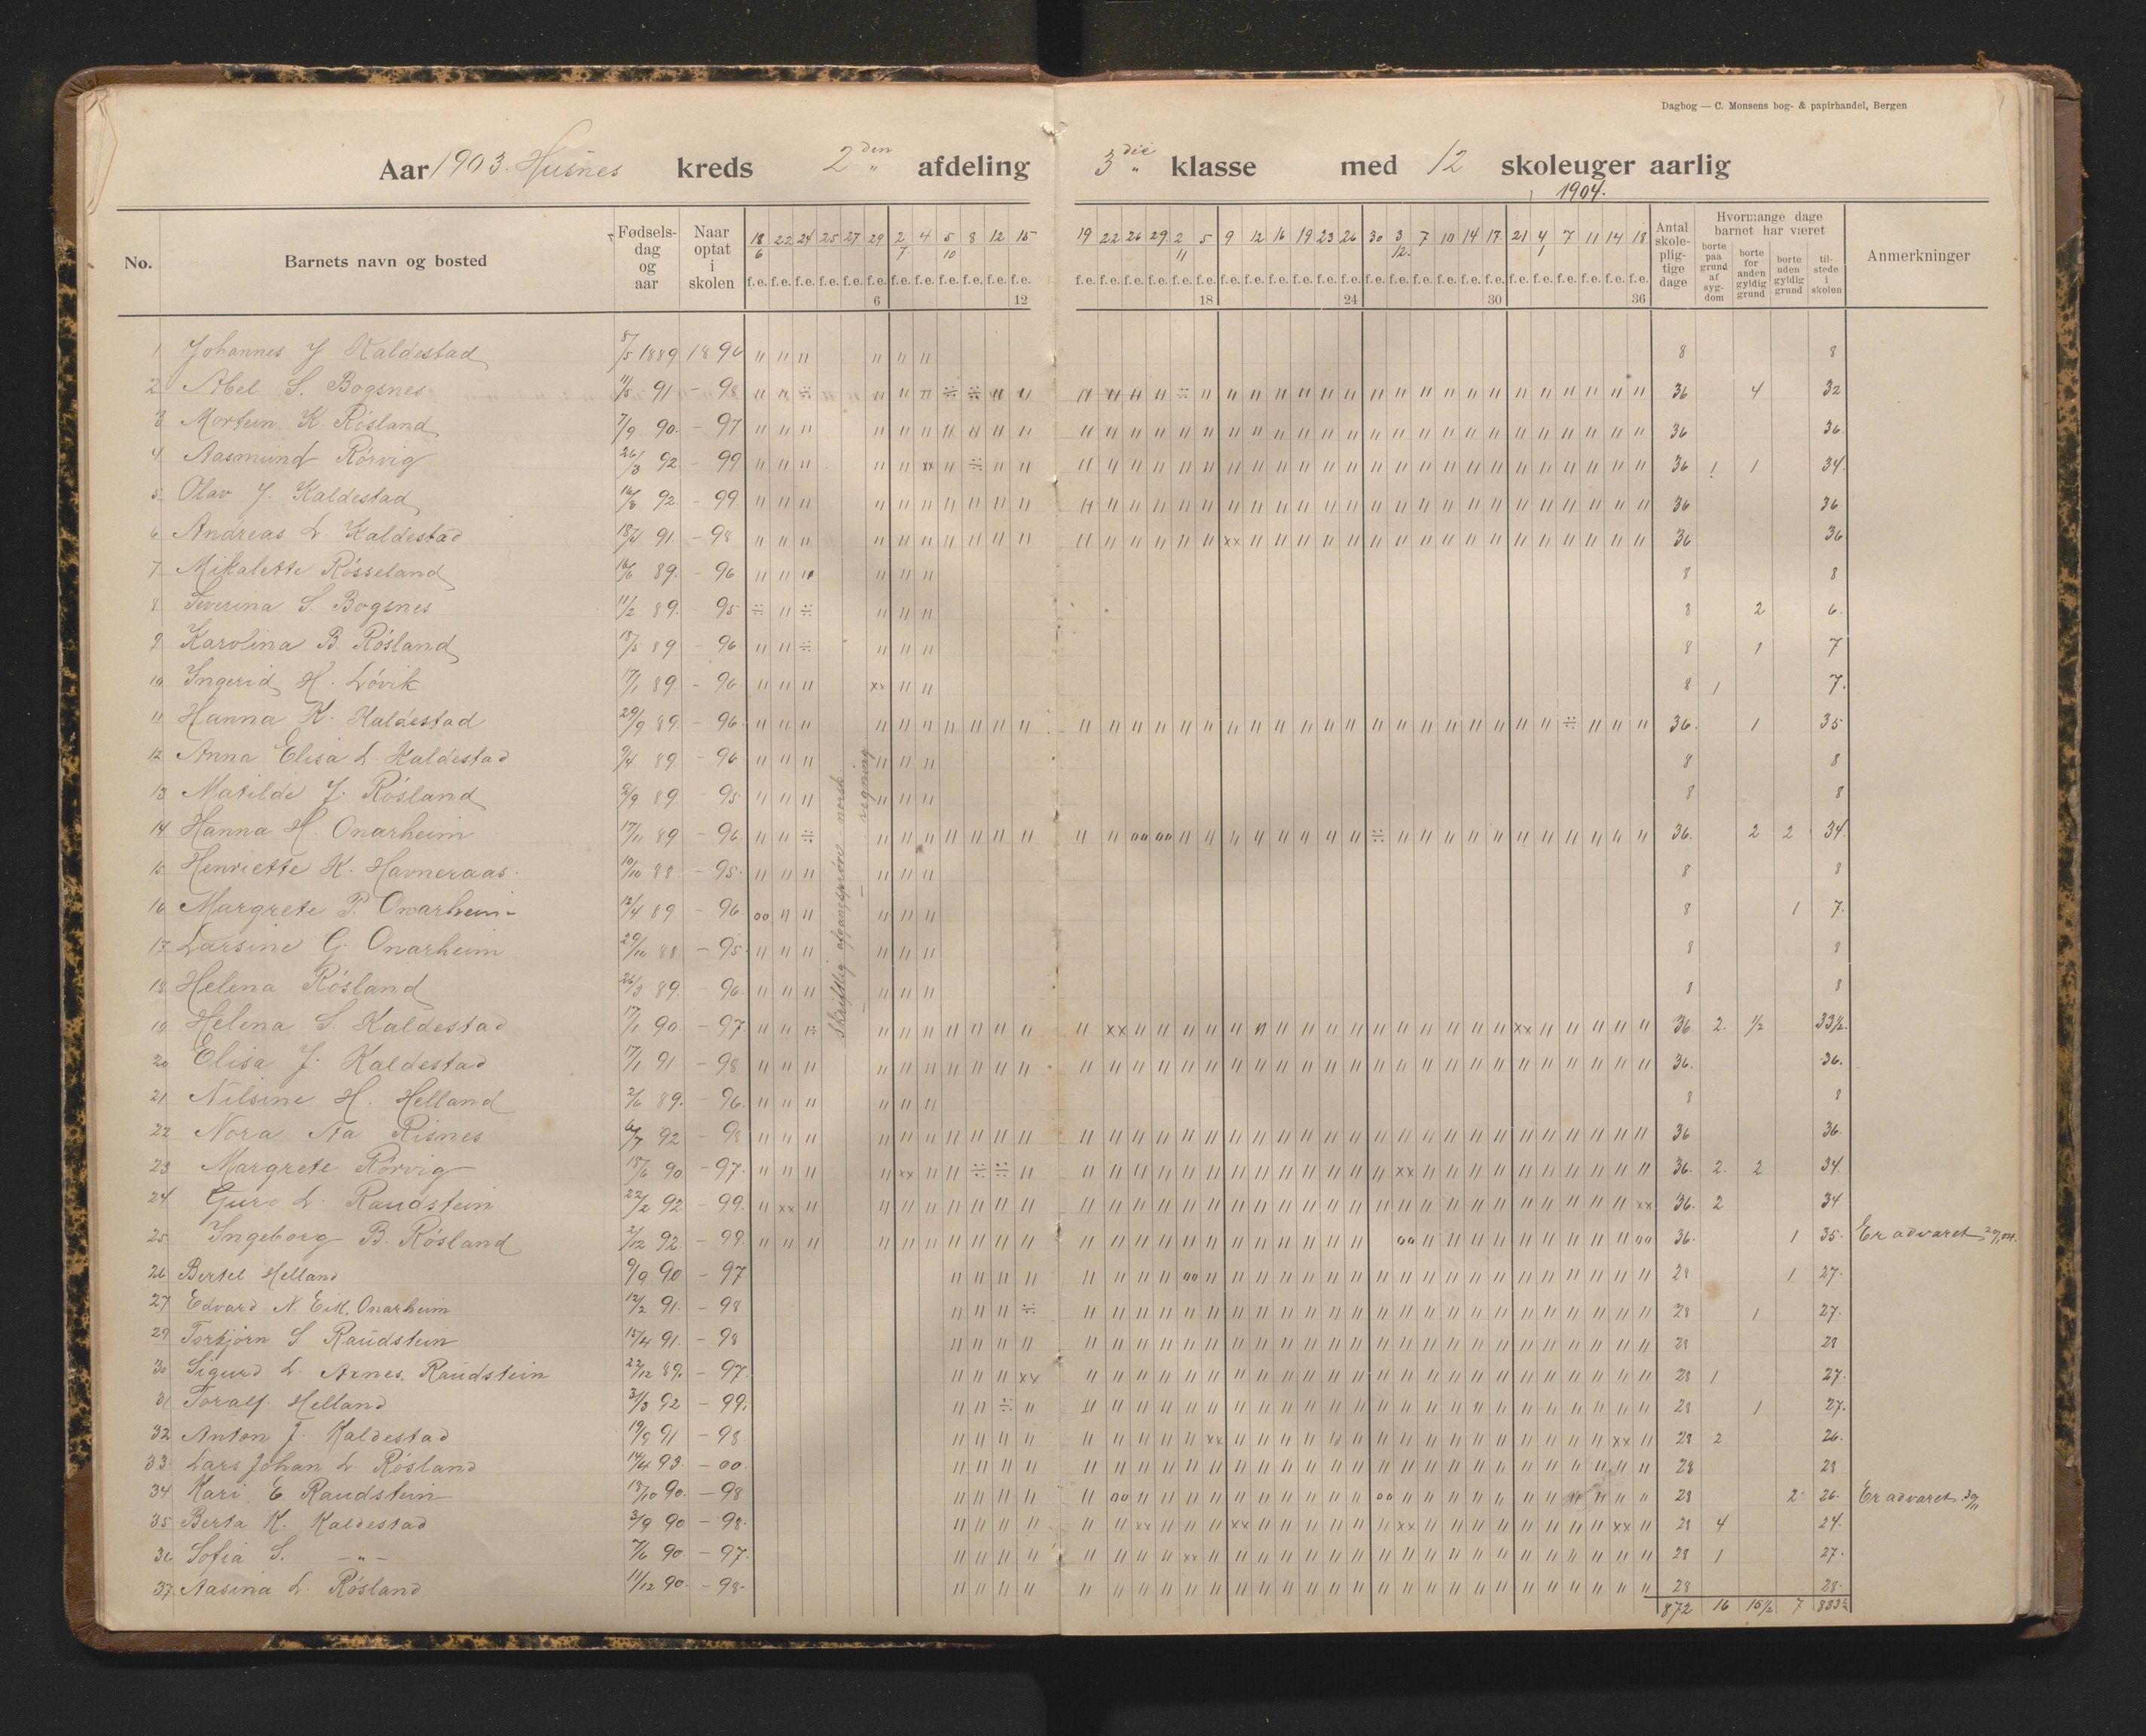 Dagbog — C. Monsens bog- & papirhandel, Bergen
Aar 1903. Husnes kreds 2den afdeling 3die klasse med 12 skoleuger aarlig
1904.
No. Barnets navn og bosted Fødsels-dag og aar Naar optat i skolen Antal skole-plig-tige dage Hvormange dage barnet har været borte paa grund af syg-dom borte for anden gyldig grund borte uden gyldig grund til-stede i skolen Anmerkninger
18 22 24 25 27 29 2 4 5 8 12 15 19 22 26 29 2 5 9 12 16 19 23 26 30 3 7 10 14 17 21 4 7 11 14 18
6 7 10 11 12. 1
f.e. f.e. f.e. f.e. f.e. f.e. f.e. f.e. f.e. f.e. f.e. f.e. f.e. f.e. f.e. f.e. f.e. f.e. f.e. f.e. f.e. f.e. f.e. f.e. f.e. f.e. f.e. f.e. f.e. f.e. f.e. f.e. f.e. f.e. f.e. f.e.
6 12 18 24 30 36
1 Johannes J Kaldestad 8/5 1889 1896 8 8
2 Abel S. Bogsnes 91 – 98 36 4 32
3 Mortein K. Røsland 7/9 90. – 97 36 36.
4 Aasmund Rørvig 26/3 92. – 99 36 1 1 34.
5. Olav J. Kaldestad 16/8 92. – 99. 36 36
6 Andreas L. Kaldestad 18/4 91. – 98 36 36
7 Mikalette Røsseland 16/6 89. – 96. 8 8
8 Severina S. Bogsnes 11/2 89. – 95 8 2 6.
9 Karolina B. Røsland 18/5 89 – 96 8 1 7
10 Ingerid H. Løvik 17/1 89. – 96. 8 1 7.
11 Hanna K. Kaldestad 29/9 89. – 96. 36. 1 35
12 Anna Elisa L. Kaldestad 9/4 89 – 96 8 8
13 Matilde J. Røsland 2/9 89 – 95 8 8
14 Hanna H. Onarheim 17/11 89 – 96. 36. 2 2 34.
15 Henriette K. Havneraas. 10/10 88. – 95. 8 8
16 Margrete P. Onarheim 12/4 89 – 96. 8 1 7.
17 Larsine G. Onarheim 29/10 88 – 95. 8 8
18 Helena Røsland 26/3 89. – 96. 8 8
19 Helena S. Kaldestad 17/1 90. – 97. 36 2. 1/2 33 1/2.
20 Elisa J. Kaldestad 17/1 91 – 98 36. 36.
21 Nilsine H. Helland 2/6 89. – 96. 8 8
22 Nora Aa Risnes 92 – 98 36 36.
23 Margrete Rørvig 15/6 90 – 97. 36. 2. 2 34.
24 Guro L. Raudstein 22/2 92 – 99. 36. 2 34
25 Ingeborg B. Røsland 2/12 92. – 99. 36. 1 35. Er advaret
26 Bertel Helland 9/9 90 – 97 28 1 27.
27 Edvard N. Eik. Onarheim 12/2 91. – 98 28 1 27.
29 Torbjørn S Raudstein 15/4 91. – 98 28 28
30 Sigurd L. Arnes. Raudstein 22/12 89. – 97. 28 1 27.
31 Toralf. Helland 3/3 92 – 99. 28 1 27.
32 Anton J. Kaldestad 19/9 91 – 98. 28 2 26.
33. Lars Johan L. Røsland 14/4 93. – 00. 28 28
34 Kari E Raudstein 18/10 90. – 98 28 2 26. Er advaret. 30/11
35 Berta K. Kaldestad 3/9 90 – 98. 28 4 24.
36 Sofia S. –"– 7/6 90. – 97. 28 1 27.
37. Aasina L. Røsland 11/12 90. – 98. 28 28.
872 16 15 1/2 7 833 1/2
Skriftlig afgangsprøve norsk
– " – regning